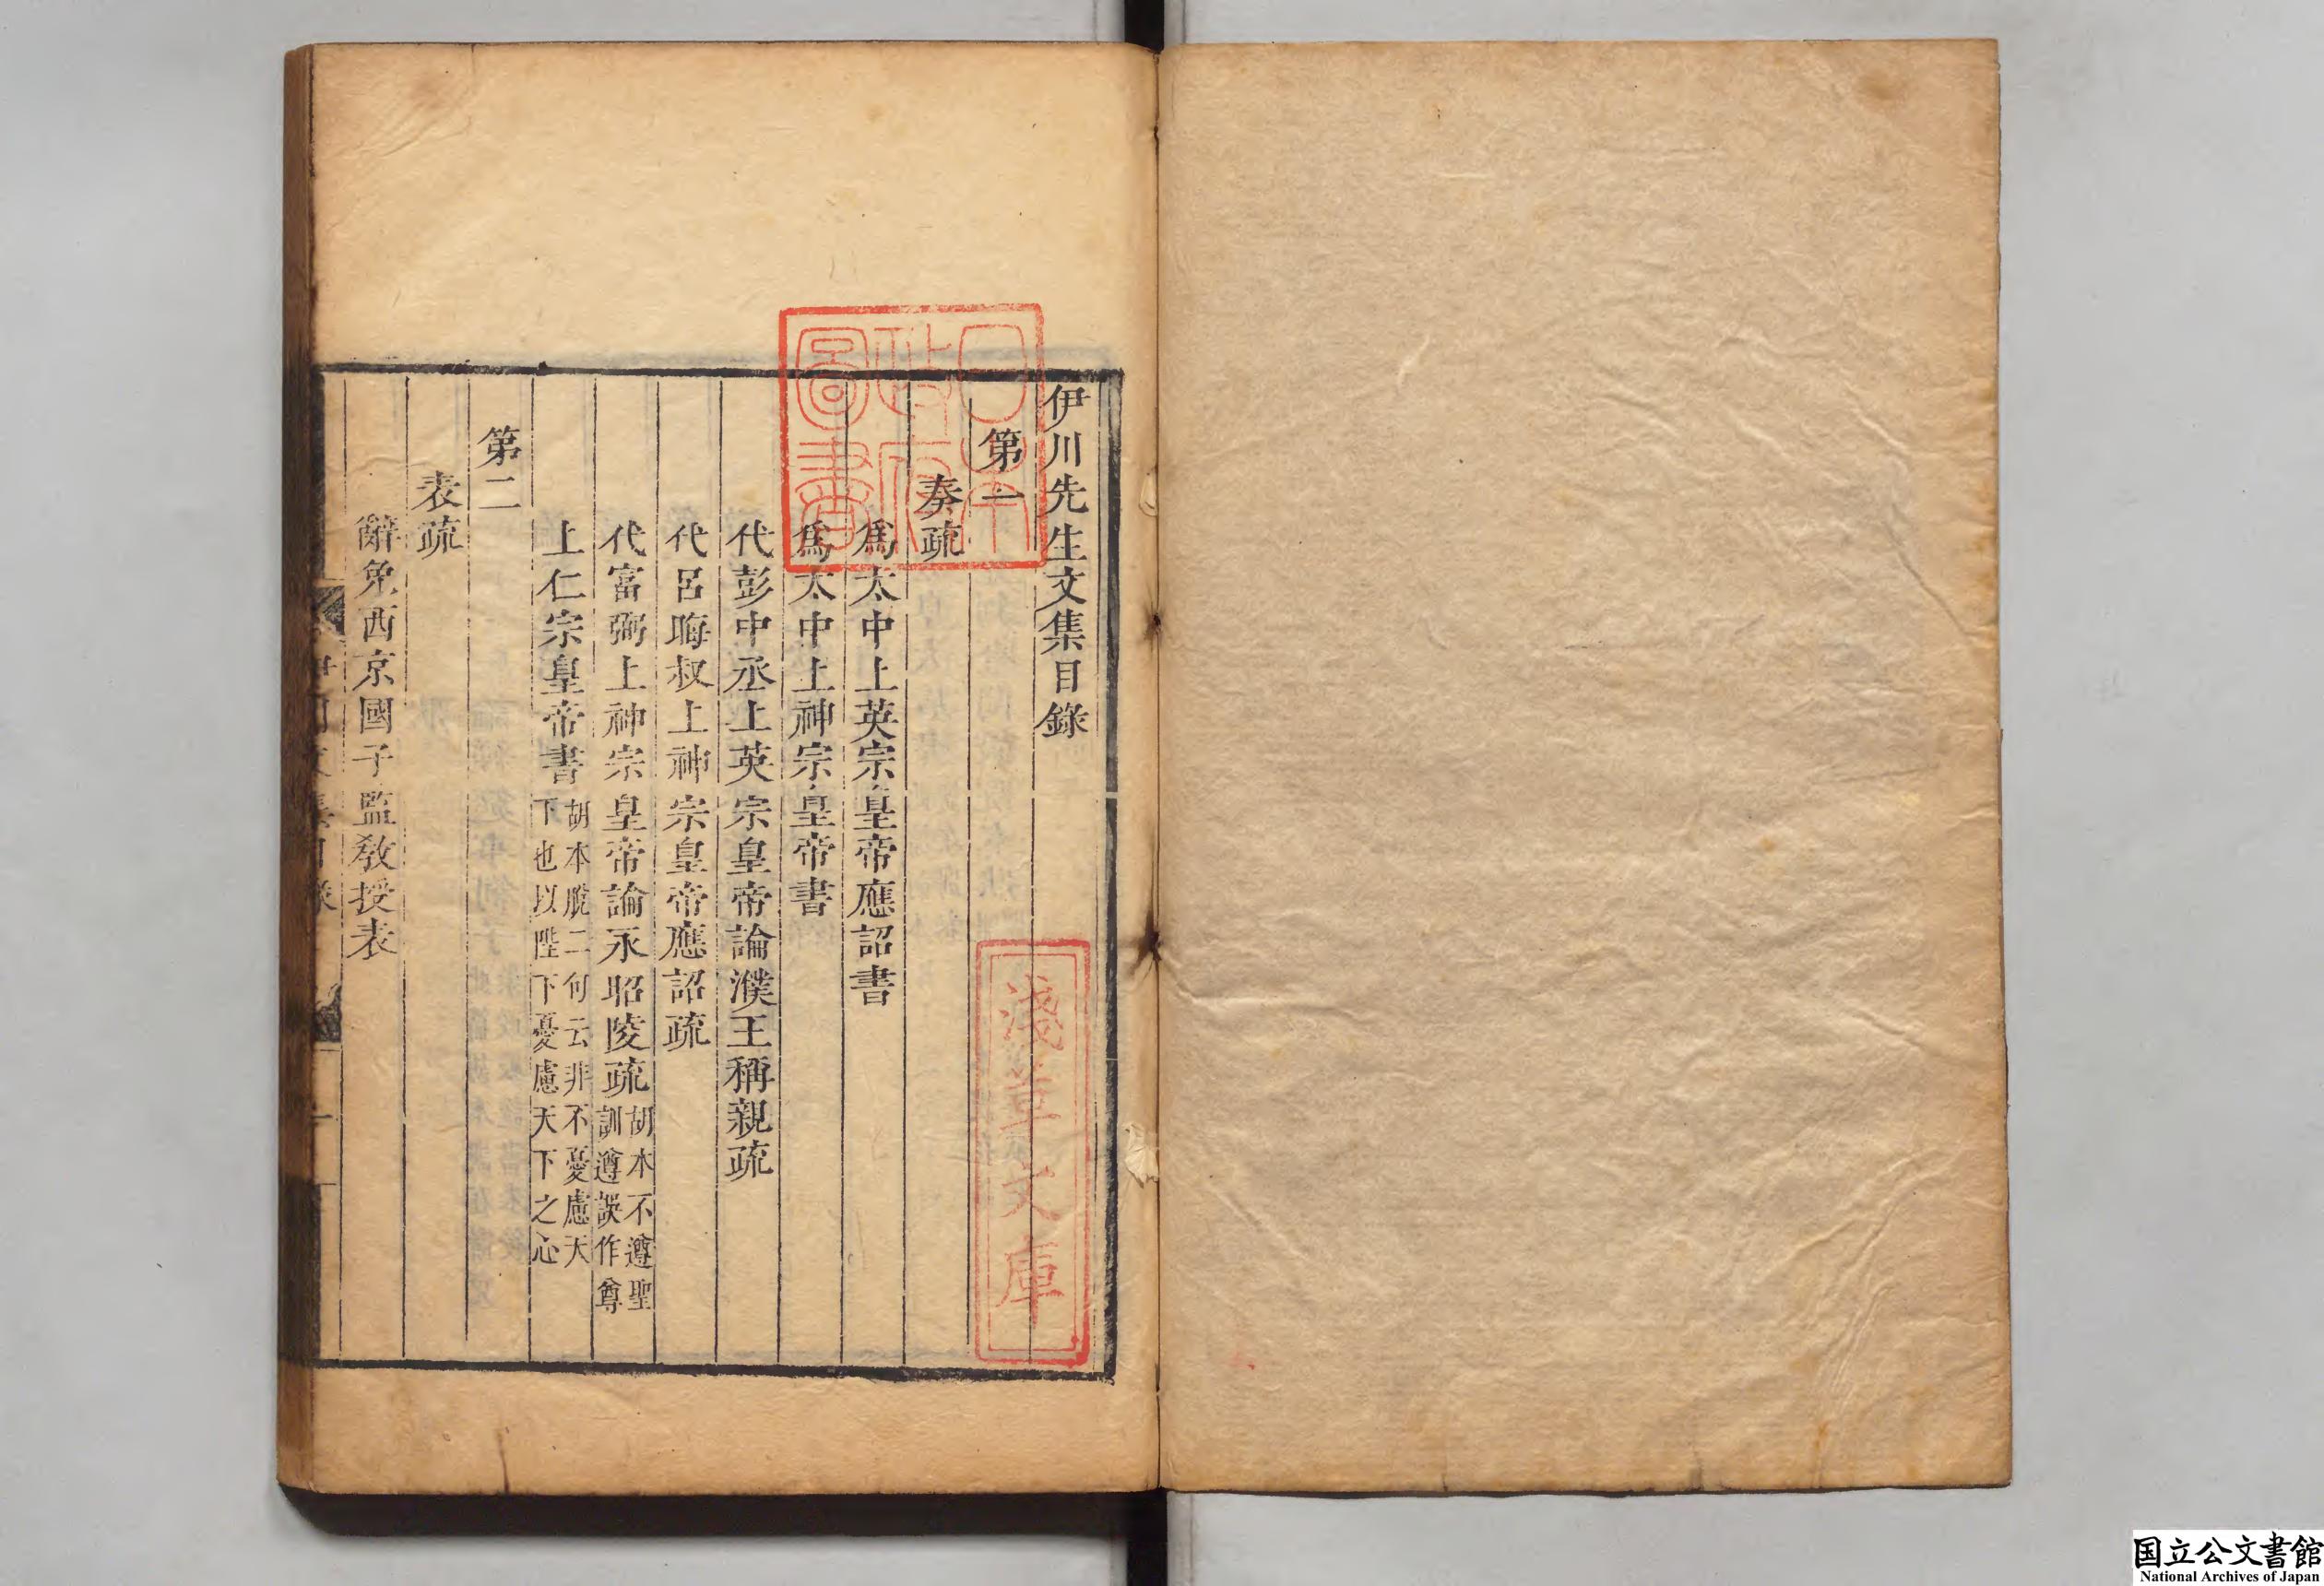 伊川先生文集目錄
第一
奏疏
爲太中上英宗皇帝應詔書
爲太中上神宗皇帝書
代彭中丞上英宗皇帝論濮王稱親疏
代呂晦叔上神宗皇帝應詔疏
代富弼上神宗皇帝論永昭陵疏
胡本不遵聖
訓遵誤作尊
上仁宗皇帝書
胡本脫二何云非不憂慮天
下也以陛下憂慮天下之心
第二
表疏
辭免西京國子監敎授表
伊川文集目錄
一
日本
政府
圖書
淺草文庫
国立公文書館
National Archives of Japan